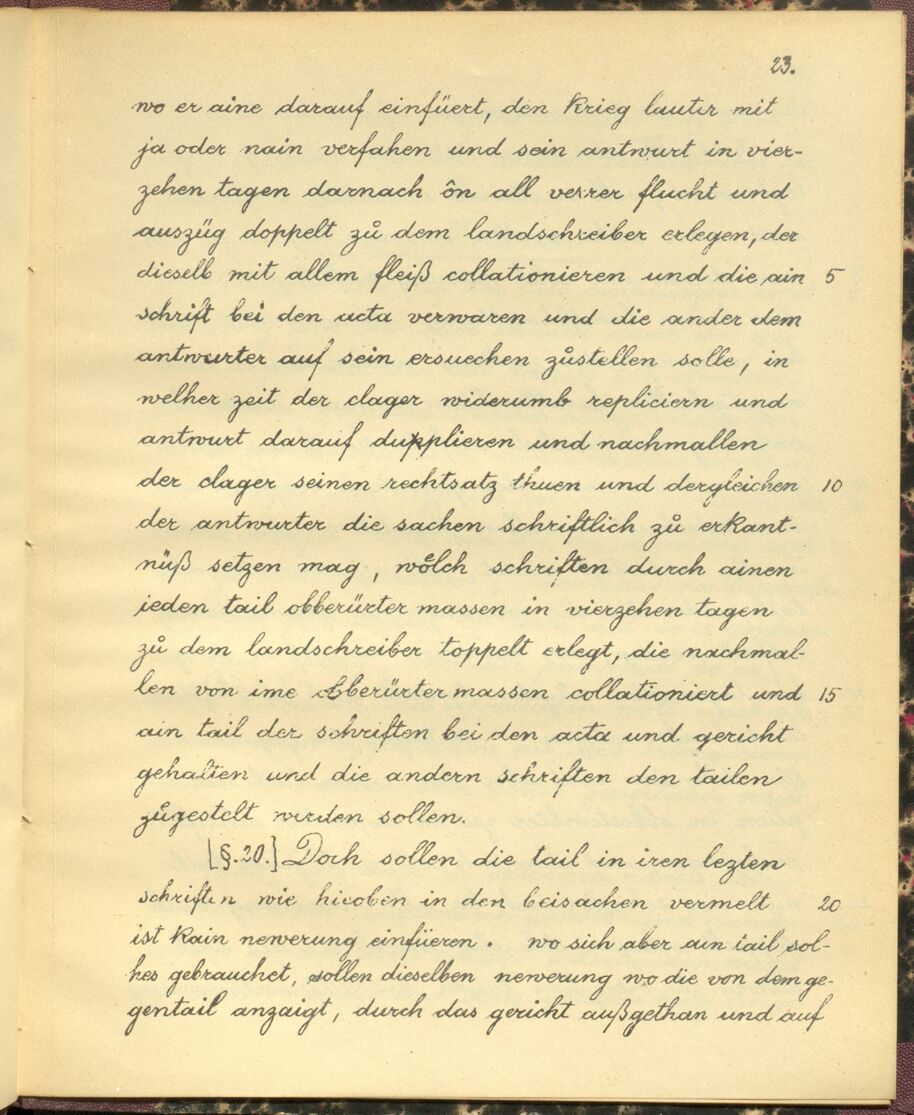 23.
wo er aine darauf einfüert, den Krieg lauter mit
ja oder nain verfahen und sein antwurt in vier-
zehen tagen darnach ôn all verrer flucht und
auszüg doppelt zů dem landschreiber erlegen, der
dieselb mit allem fleiß collationieren und die ain 5
schrift bei den acta verwaren und die ander dem
antwurter auf sein ersuechen zůstellen solle, in
welher zeit der clager widerumb repliciern und
antwurt darauf dupplieren und nachmallen
der clager seinen rechtsatz thuen und dergleichen 10
der antwurter die sachen schriftlich zů erkant-
nüß setzen mag, wölch schriften durch ainen
ieden tail obberürter massen in vierzehen tagen
zů dem landschreiber toppelt erlegt, die nachmal-
len von ime obberürter massen collationiert und 15
ain tail der schriften bei den acta und gericht
gehalten und die andern schriften den tailen
zůgestelt werden sollen.
[§. 20.] Doch sollen die tail in iren lezten
schriften wie hieoben in den beisachen vermelt 20
ist kain newerung einfüeren. wo sich aber ain tail sol-
hes gebrauchet, sollen dieselben newerung wo die von dem ge-
gentail anzaigt, durch das gericht außgethan und auf